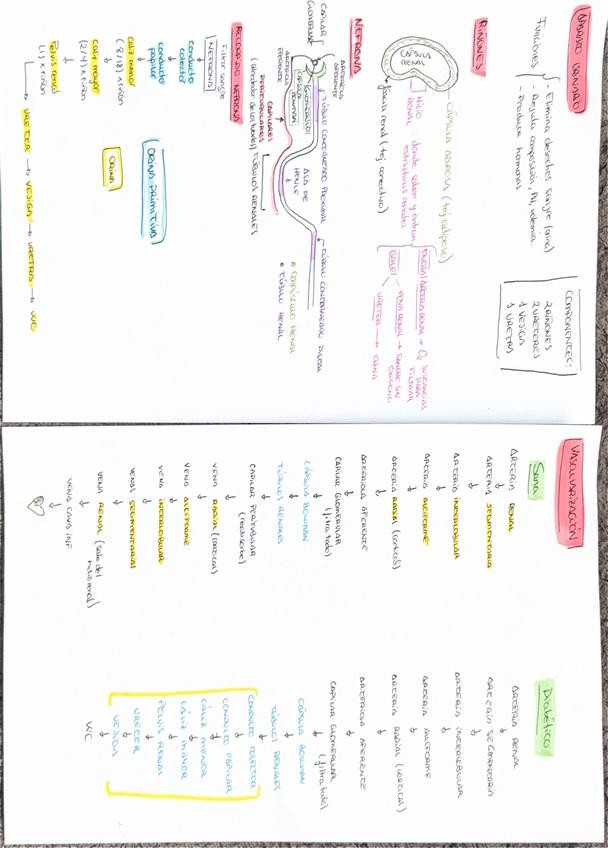 APARATO URINARIO
FUNCIONES
- Elimina desechos sangre (orina)
- Regula composición, PH, volemia.
- Produce hormonas
COMPONENTES:
2 RIÑONES
2 URÉTERES
1 VEJIGA
1 URETRA
RIÑONES
CÁPSULA RENAL
CÁPSULA ADIPOSA (tej adiposo)
HILIO RENAL: donde salen y entran estructuras renales
fascia renal (tej conectivo)
ENTRA: ARTERIA RENAL → O2 SUSTANCIAS PARA FILTRAR
SALE: VENA RENAL → SANGRE SIN OXÍGENO
URETER → ORINA
NEFRONA
CAPILAR GLOMERULAR
ARTERIOLA AFERENTE
ARTERIOLA EFERENTE
GLOMÉRULO
CAPSULA BOWMAN
TÚBULO CONTORNEADO PROXIMAL
ASA DE HENLE
TÚBULO CONTORNEADO DISTAL
CAPILARES PERITUBULARES
(alrededor de los tubulos)
TÚBULOS RENALES
CORPÚSCULO RENAL
TÚBULO RENAL
RECORRIDO NEFRONA
Filtra sangre
NEFRONA
conducto colector
conducto papilar
Cáliz menor (8/18) x riñón
Cáliz mayor (2/4) x riñón
Pelvis renal (1) x riñón
ORINA PRIMITIVA
ORINA
→ URETER → VEJIGA → URETRA → WC
VASCULARIZACIÓN
Sana
ARTERIA RENAL
↓
ARTERIAS SEGMENTARIA
↓
ARTERIA INTERLOBULAR
↓
ARTERIA ARCIFORME
↓
ARTERIA RADIAL (cortical)
↓
ARTERIOLA AFERENTE
↓
CAPILAR GLOMERULAR (filtrado)
↓
CÁPSULA BOWMAN
↓
TÚBULOS RENALES
↓
CAPILAR PERITUBULAR (reabsorbe)
↓
VENA RADIAL (cortical)
↓
VENA ARCIFORME
↓
VENA INTERLOBULAR
↓
VENAS SEGMENTARIAS
↓
VENA RENAL (sale del hilio renal)
↓
VENA CAVA INF
↓
Diabético
ARTERIA RENAL
↓
ARTERIA SEGMENTARIA
↓
ARTERIA INTERLOBULAR
↓
ARTERIA ARCIFORME
↓
ARTERIA RADIAL (cortical)
↓
ARTERIOLA AFERENTE
↓
CAPILAR GLOMERULAR (filtrado)
↓
CÁPSULA BOWMAN
↓
TÚBULOS RENALES
↓
CONDUCTO COLECTOR
↓
CONDUCTO PAPILAR
↓
CÁLIZ MENOR
↓
CÁLIZ MAYOR
↓
PELVIS RENAL
↓
URETER
↓
VEJIGA
↓
WC